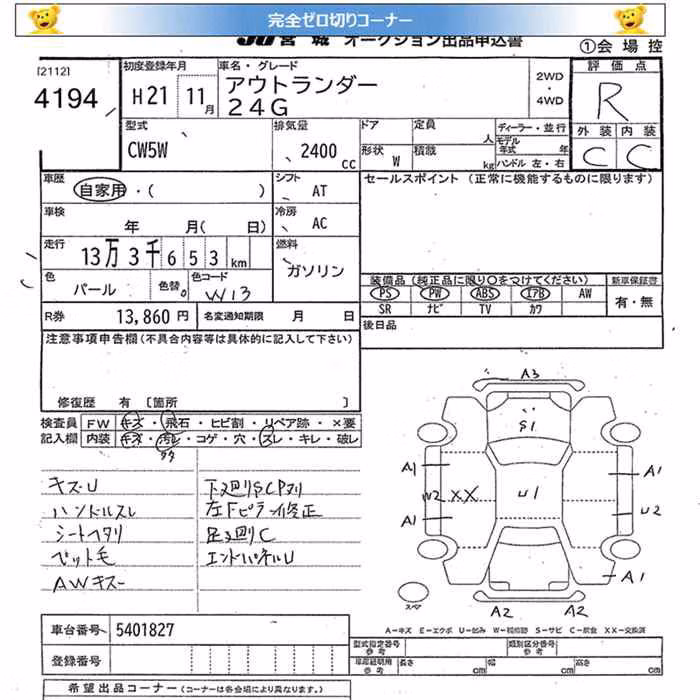 完全ゼロ切りコーナー
JU宮城 オークション出品申込書
①会場控
[2112]
4194
初度登録年月
H21 11月
車名・グレード
アウトランダー
24G
2WD
・
4WD
評価点
R
外装 内装
C C
型式
CW5W
排気量
2400 cc
ドア
形状 W
定員 人
積載 kg
ディーラー・並行
モデル年式 年
ハンドル 左・右
車歴
自家用・( )
シフト
AT
セールスポイント (正常に機能するものに限ります)
車検
年 月( 日)
冷房
AC
走行
13万3千653km
燃料
ガソリン
色
パール
色替
色コード
W13
装備品(純正品に限り○をつけてください)
新車保証書
PS PW ABS エアB AW
SR ナビ TV カワ
有・無
R券
13,860円
名変通知期限 月 日
後日品
注意事項申告欄(不具合内容等は具体的に記入して下さい)
修復歴 有 [箇所 ]
検査員
記入欄
FW キズ・飛石・ヒビ割・リペア跡・×要
内装 キズ・汚レ・コゲ・穴・スレ・キレ・破レ
キズU
ハンドルスレ
シートヘタリ
ペット毛
AWキズ
下廻りSCPヌリ
左Fピラー修正
足廻りC
エンドパネルU
A3
S1
A1
A1
W2 XX
U1
U2
A1
A1
A2
A2
スペア
A-キズ E-エクボ U-凹み W-補修跡 S-サビ C-腐食 XX-交換済
車台番号 5401827
登録番号
型式指定番号
参考
類別区分番号
参考
車庫証明用
参考
長さ cm
幅 cm
高さ cm
希望出品コーナー(コーナーは各会場により異なります。)